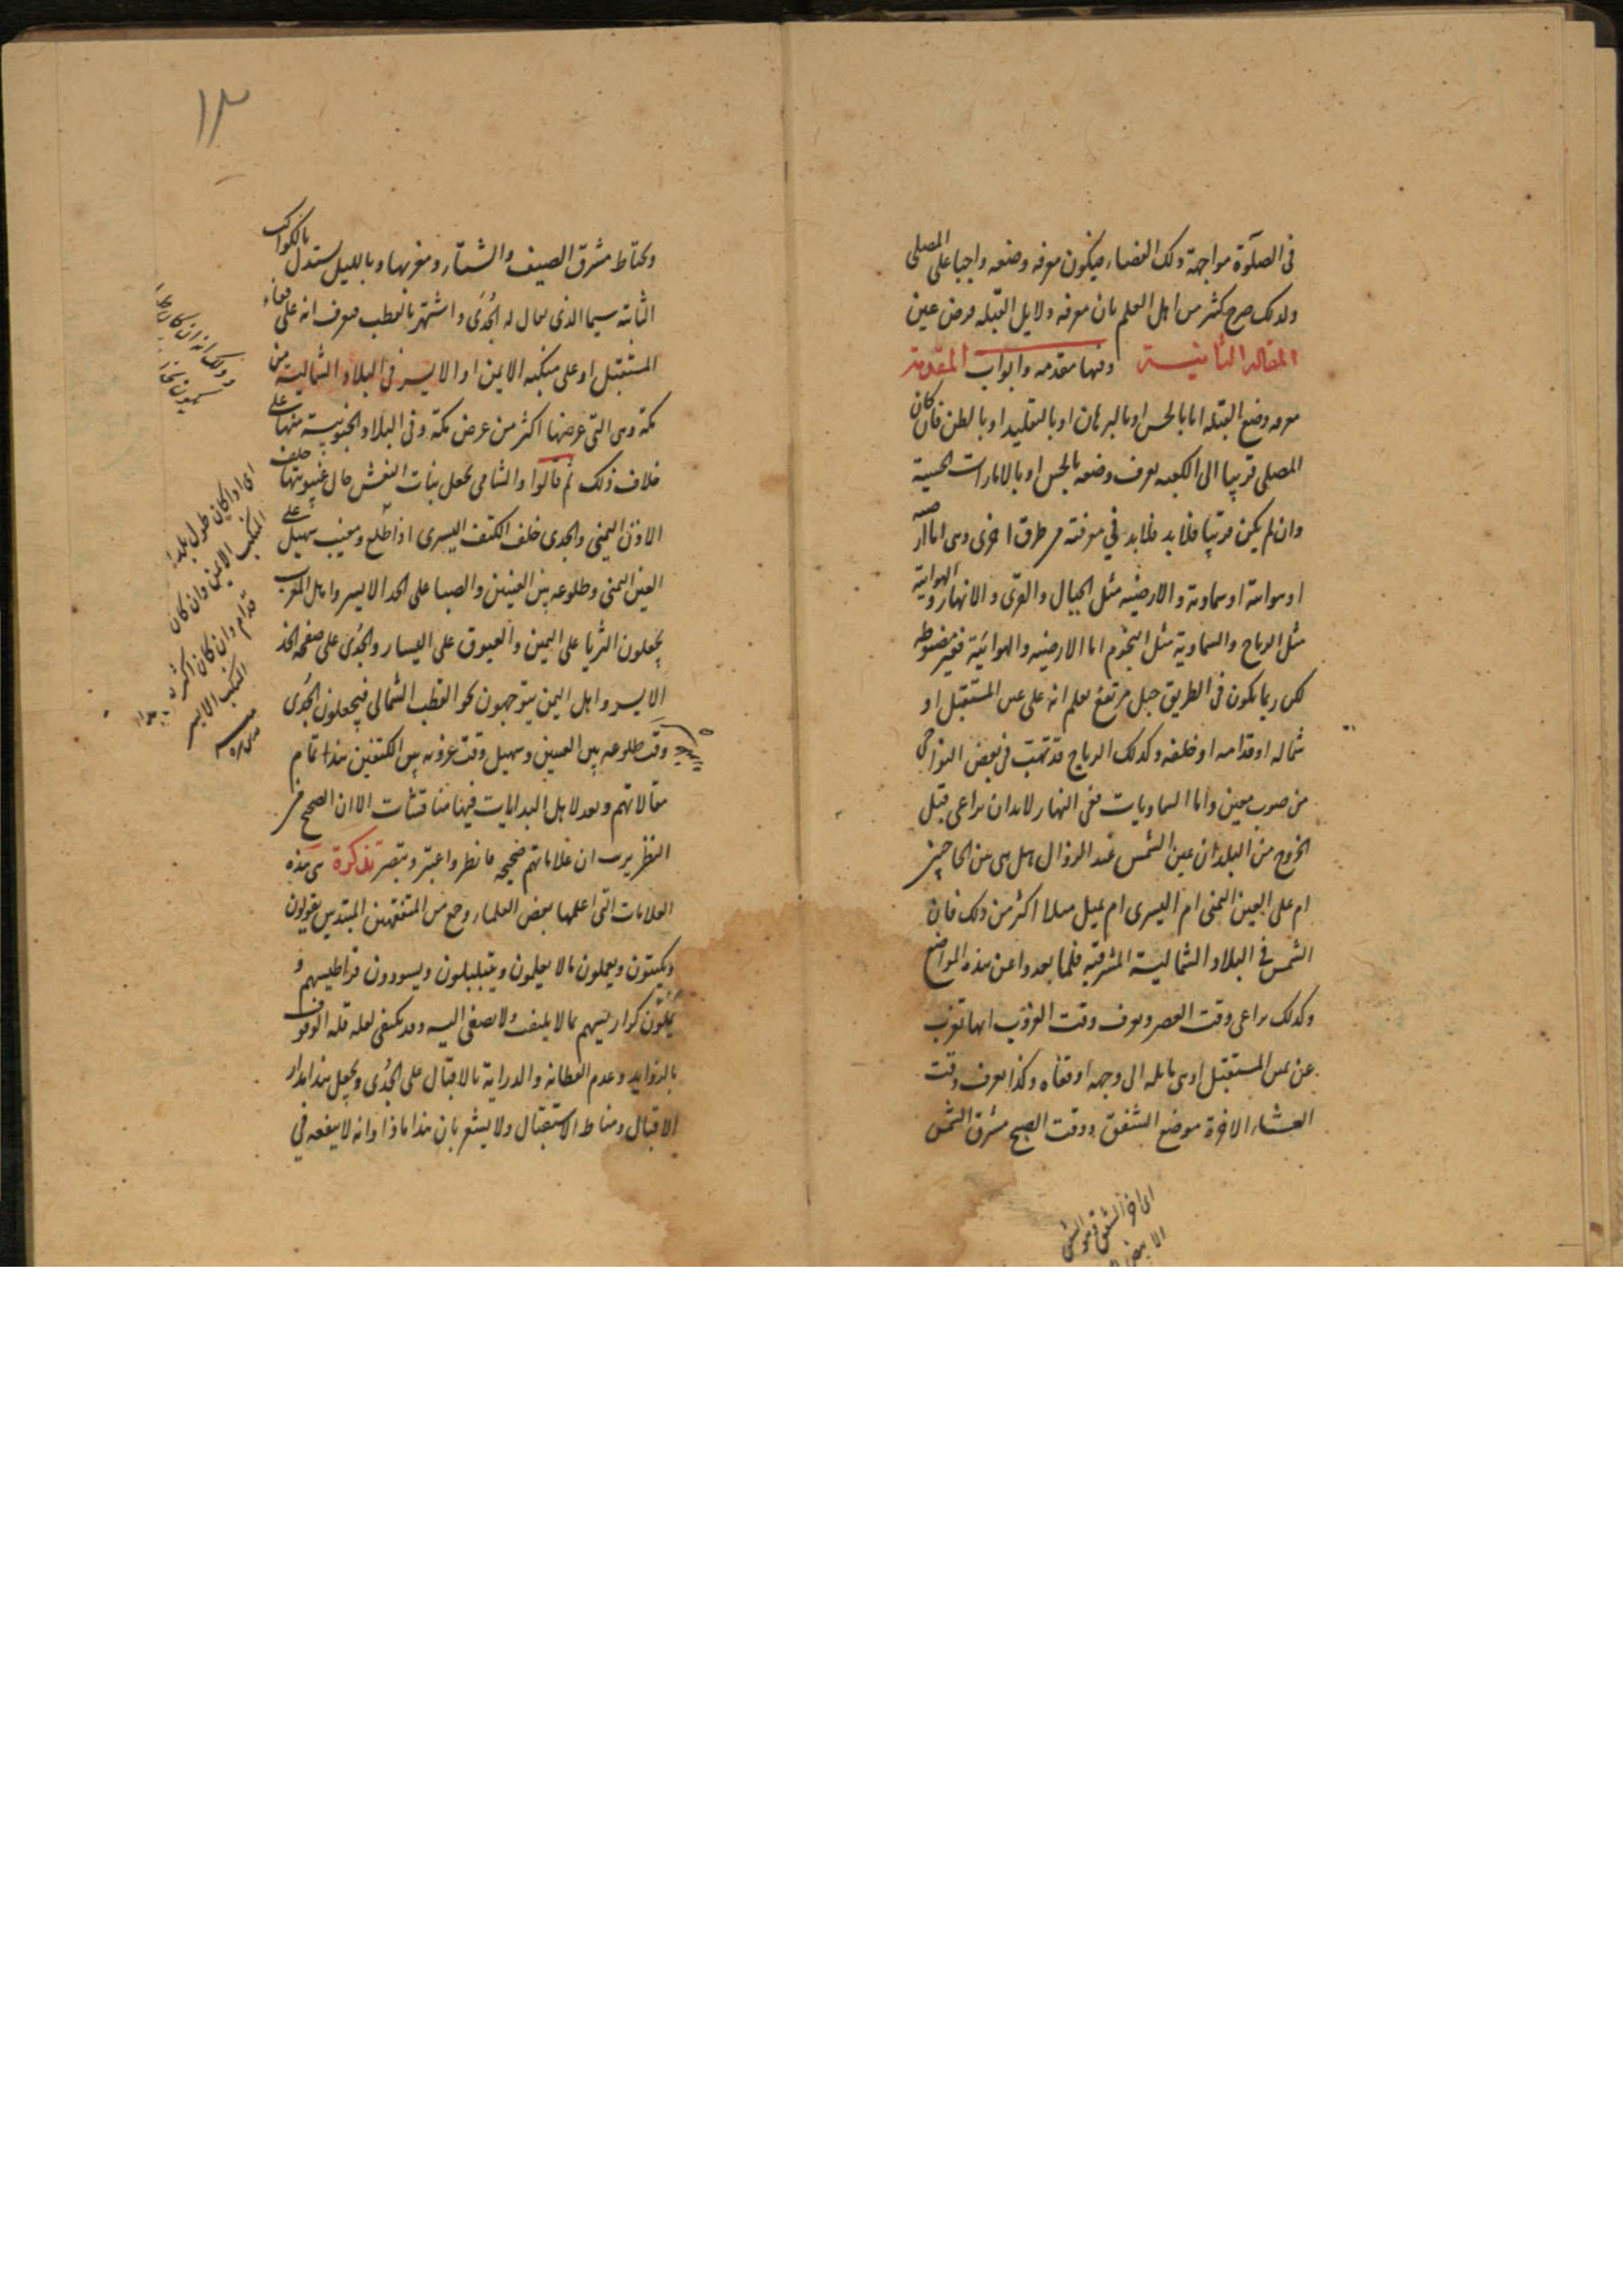 في الصلوة مواجهة ذلك الفضاء فيكون معرفة وضعه واجبا على المصلى
ولذلك صرح كثير من اهل العلم بان معرفة دلايل القبلة فرض عين
المقالة الثانية وفيها مقدمة وابواب المقدمة
معرفة وضع القبلة اما بالحس او بالبرهان او بالتقليد او بالظن فان كان
المصلى قريبا الى الكعبة يعرف وضعه بالحس او بالامارات الحسية
وان لم يكن قريبا فلا بد فلا بد في معرفته من طرق اخرى وهى اما ارضية
او هوائية او سماوية والارضية مثل الجبال والقرى والانهار والهوائية
مثل الرياح والسماوية مثل النجوم اما الارضية والهوائية فغير مضبوطة
لكن ربما يكون في الطريق جبل مرتفع يعلم انه على يمين المستقبل او
شماله او قدامه او خلفه وكذلك الرياح قد تهب في بعض النواحى
من صوب معين واما السماويات ففى النهار لا بد ان يراعى قبل
الخروج من البلد ان عين الشمس عند الزوال هل هى بين الحاجبين
ام على العين اليمنى ام اليسرى ام يميل ميلا اكثر من ذلك فان
الشمس في البلاد الشمالية المشرقية قلما يعدوا عن هذه المواضع
وكذلك يراعى وقت العصر ويعرف وقت الغروب انها تغرب
عن يمين المستقبل او هى مايلة الى وجهه او قفاه وكذا يعرف وقت
العشاء الاخرة موضع الشفق ووقت الصبح مشرق الشمس
اى اخر الشفق وهو الشفق
الابيض
١٣
ويحتاط مشرق الصيف والشتاء ومغربهما وبالليل يستدل بالكواكب
الثابتة سيما الذى يقال له الجُدَى واشتهر بالقطب فيعرف انه على قفاء
المستقبل او على منكبه الايمن او الايسر في البلاد الشمالية من
مكة وهى التى عرضها اكثر من عرض مكة وفي البلاد الجنوبية منها على
خلاف ذلك ثم قالوا والشامى يجعل بنات النعش حال غيبوبتها خلف
الاذن اليمنى والجدى خلف الكتف اليسرى اذا طلع ومغيب سهيل على
العين اليمنى وطلوعه بين العينين والصبا على الخد الايسر واهل المغرب
يجعلون الثريا على اليمين والعيوق على اليسار والجُدَى على صفحة الخد
الايسر واهل اليمن يتوجهون نحو القطب الشمالى فيجعلون الجُدَى
وقت طلوعه بين العينين وسهيل وقت غروبه بين الكتفين هذا تمام
مقالاتهم وبعد لاهل البدايات فيها مناقشات الا ان الصحيح من
النظر يرى ان علاماتهم صحيحة فانظر واعتبر وتبصر تذكرة هى هذه
العلامات التى اعلمها بعض العلماء وجمع من المتفقهين المبتدين يقولون
ويكتبون ويعملون ما لا يعلمون ويتبلبلون ويسودون قراطيسهم و
يملئون كراريسهم بما لا يلتفت ولا يصغى اليه وقد يكتفى لعله قلة الوقوف
بالزوايد وعدم الفطانة والدراية بالاقبال على الجُدَى ويجعل هذا مدار
الاقبال ومناط الاستقبال ولا يشعر بان هذا ماذا وانه لا ينفعه في
اى اذا كان طول بلد
المنكب الايمن وان كان
قدام وان كان اكثر
المنكب الايسر
منه